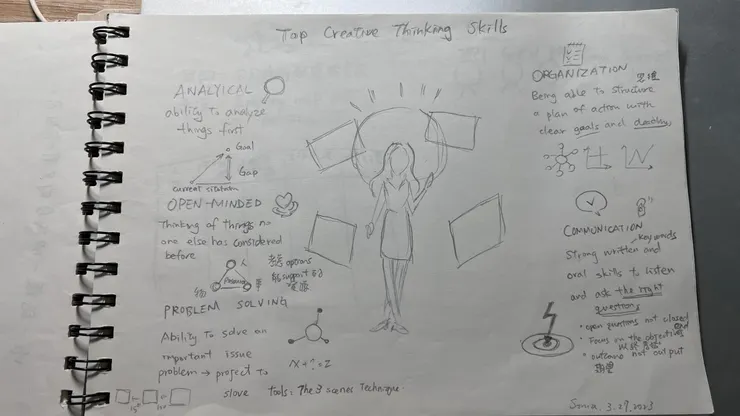 Top Creative Thinking Skills
ANALYICAL
ability to analyze
things first
Goal
Gap
current sitation
OPEN-MINDED
Thinking of things no
one else has considered
before
人
物
事
options
support
PROBLEM SOLVING
Ability to solve an
important issue
problem → project to
slove
X+?=2
tools: The 3 scenes technique.
ORGANIZATION
Being able to structure
a plan of action with
clear goals and
COMMUNICATION
keywords
Strong written and
oral skills to listen
and ask the right
questions
• open questions not closed
• Focus on the objectives
• outcome not output
期望
Sonia 3.27.2023